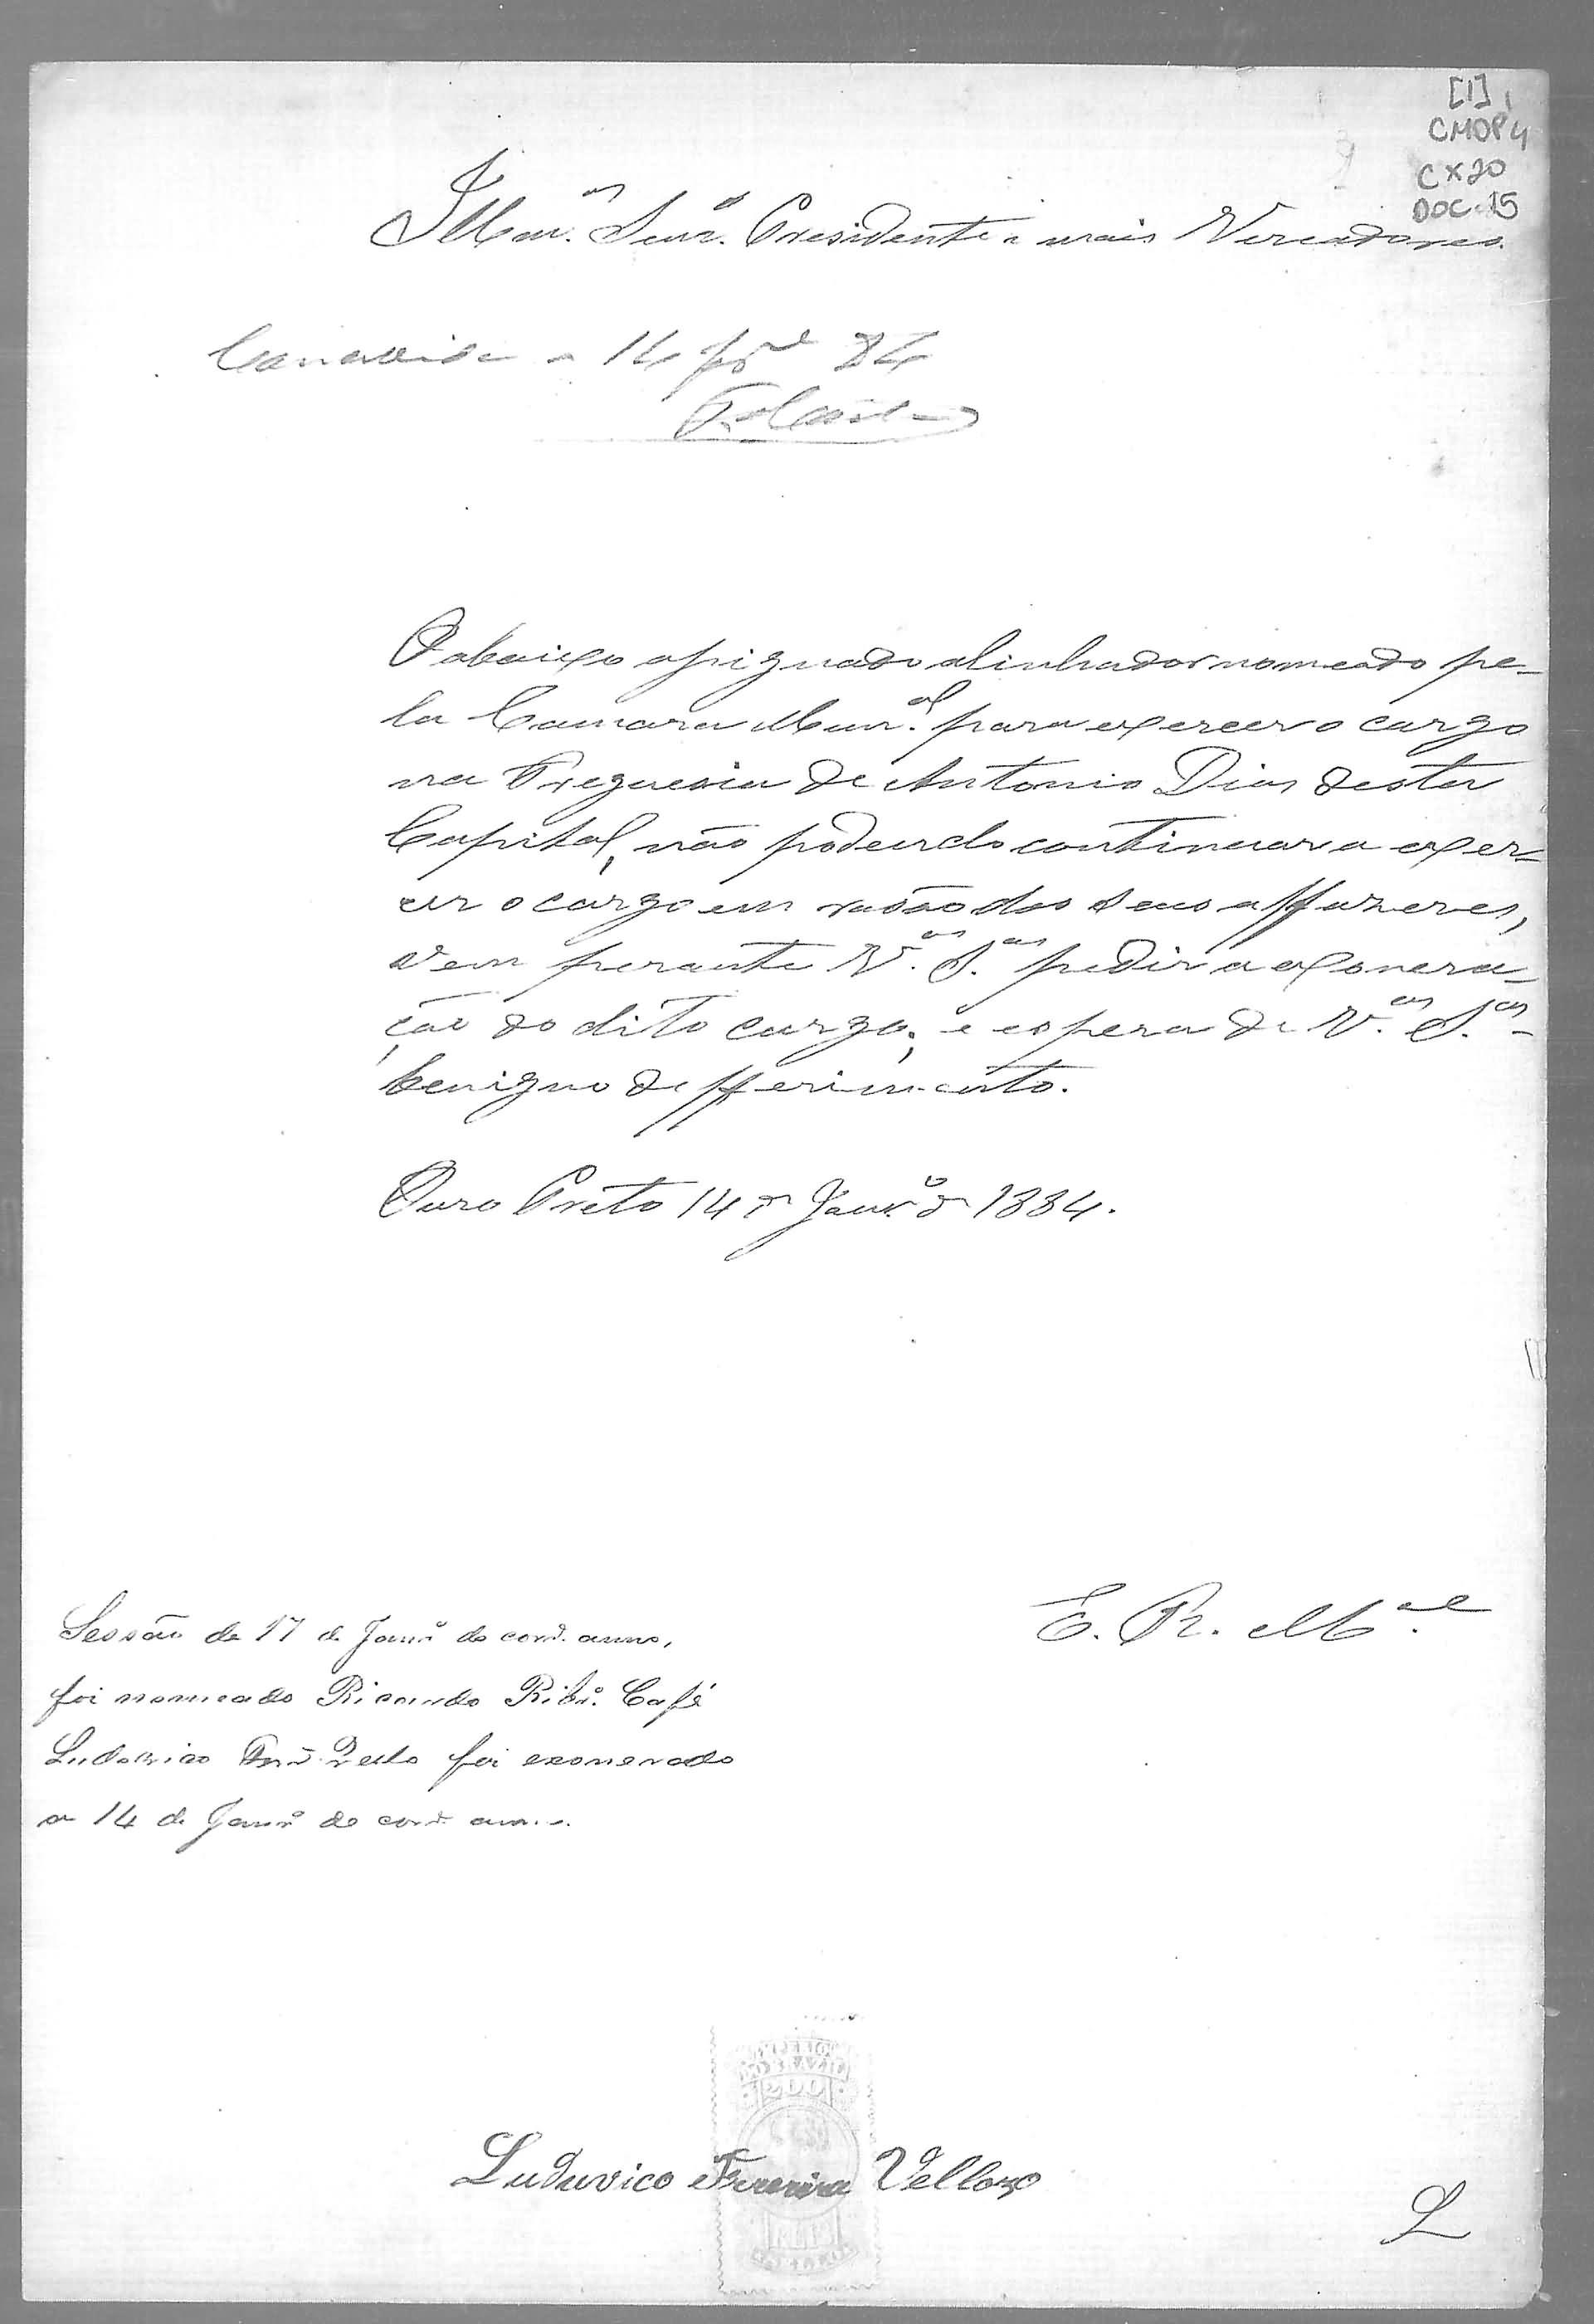 [1] 1
CMOP 4
CX20
DOC. 15
Illm.os Senr.es Presidente e mais Vereadores.
14 84
O abaixo assignado alinhador nomeado pe-
la Camara Mun.al para exercer o cargo
na Freguesia de Antonio Dias desta
Capital, não podendo continuar a exer-
cer o cargo em rasão dos seus affazeres,
vem perante V.as S.as pedir a exonera-
ção do dito cargo; e espera de V.as S.as
benigno defferimento.
Ouro Preto 14 de Janr.o de 1884.
E. R. M.ce
Sessão de 17 de Janr.o do corr.e anno,
foi nomeado Ricardo Ribr.o Café
Ludovico Ferr.a Vello foi exonerado
a 14 de Janr.o do corr.e anno.
IMPERIO
DO BRAZIL
200
REIS
Luduvico Ferreira Vellozo
L